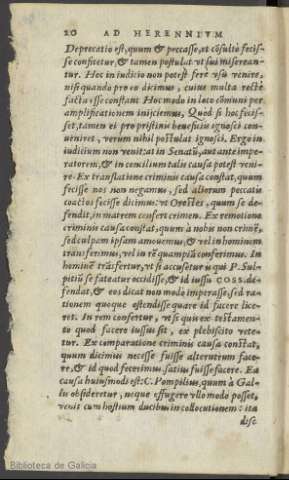 20 AD HERENNIVM
Deprecatio est, quum & peccasse, et cōsultò fecis-
se confitetur, & tamen postulat vt sui miserean-
tur. Hoc in iudicio non potest fere vsu venire,
nisi quando pro eo dicimus, cuius multa rectè
facta esse constant Hoc modo in loco cōmuni per
amplificationem iniiciemus, Quod si hoc fecis-
set, tamen ei pro pristinis beneficiis ignosci con-
uiniret, verum nihil postulat ignosci. Ergo in
iudicium non venit, at in Senatū, aut ante impe-
ratorem, & in concilium talis causa potest veni-
re. Ex translatione criminis causa constat, quum
fecisse nos non negamus, sed aliorum peccatis
coactos fecisse dicimus: vt Orestes, quum se de-
fendit, in matrem confert crimen. Ex remotione
criminis causa constat, quum à nobis non crimē,
sed culpam ipsam amouemus, & vel in hominem
transferimus, vel in rē quampiā conferimus. In
hominē trāsfertur, vt si accusetur is qui P. Sul-
pitiū se fateatur occidisse, & id iussu COSS. de-
fendat, & eos dicat non modo imperasse, sed ra-
tionem quoque ostendisse quare id facere lice-
ret. In rem confertur, vt si quis ex testamen-
to quod facere iussus sit, ex plebiscito vete-
tur. Ex comparatione criminis causa constat,
quum dicimus necesse fuisse alterutrum face-
re, & id quod fecerimus satius fuisse facere. Ea
causa huiusmodi est: C. Pompilius, quum à Gal-
lis obsideretur, neque effugere vllo modo posset,
venit cum hostium ducibus in collocutionem: ita
disc
Biblioteca de Galicia